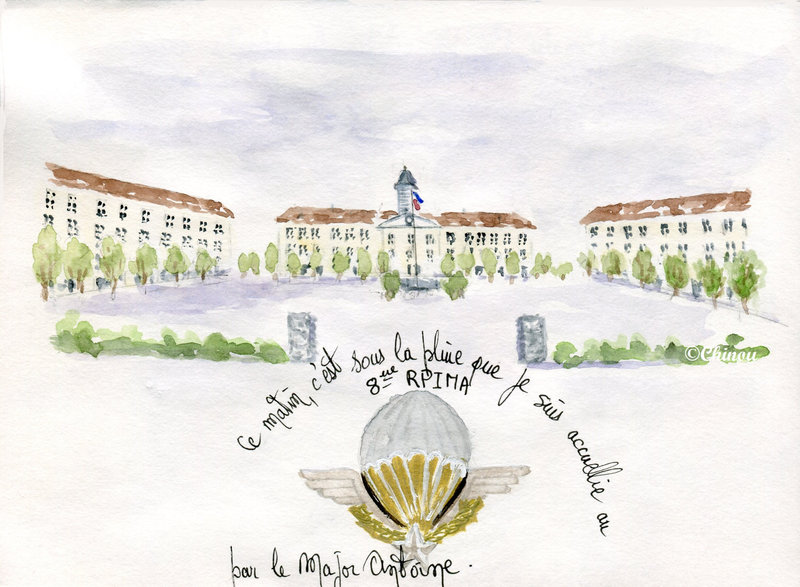 Ce matin, c'est sous la pluie que je suis accueillie au
8ème RPIMA
par le Major Antoine.
©Chinou